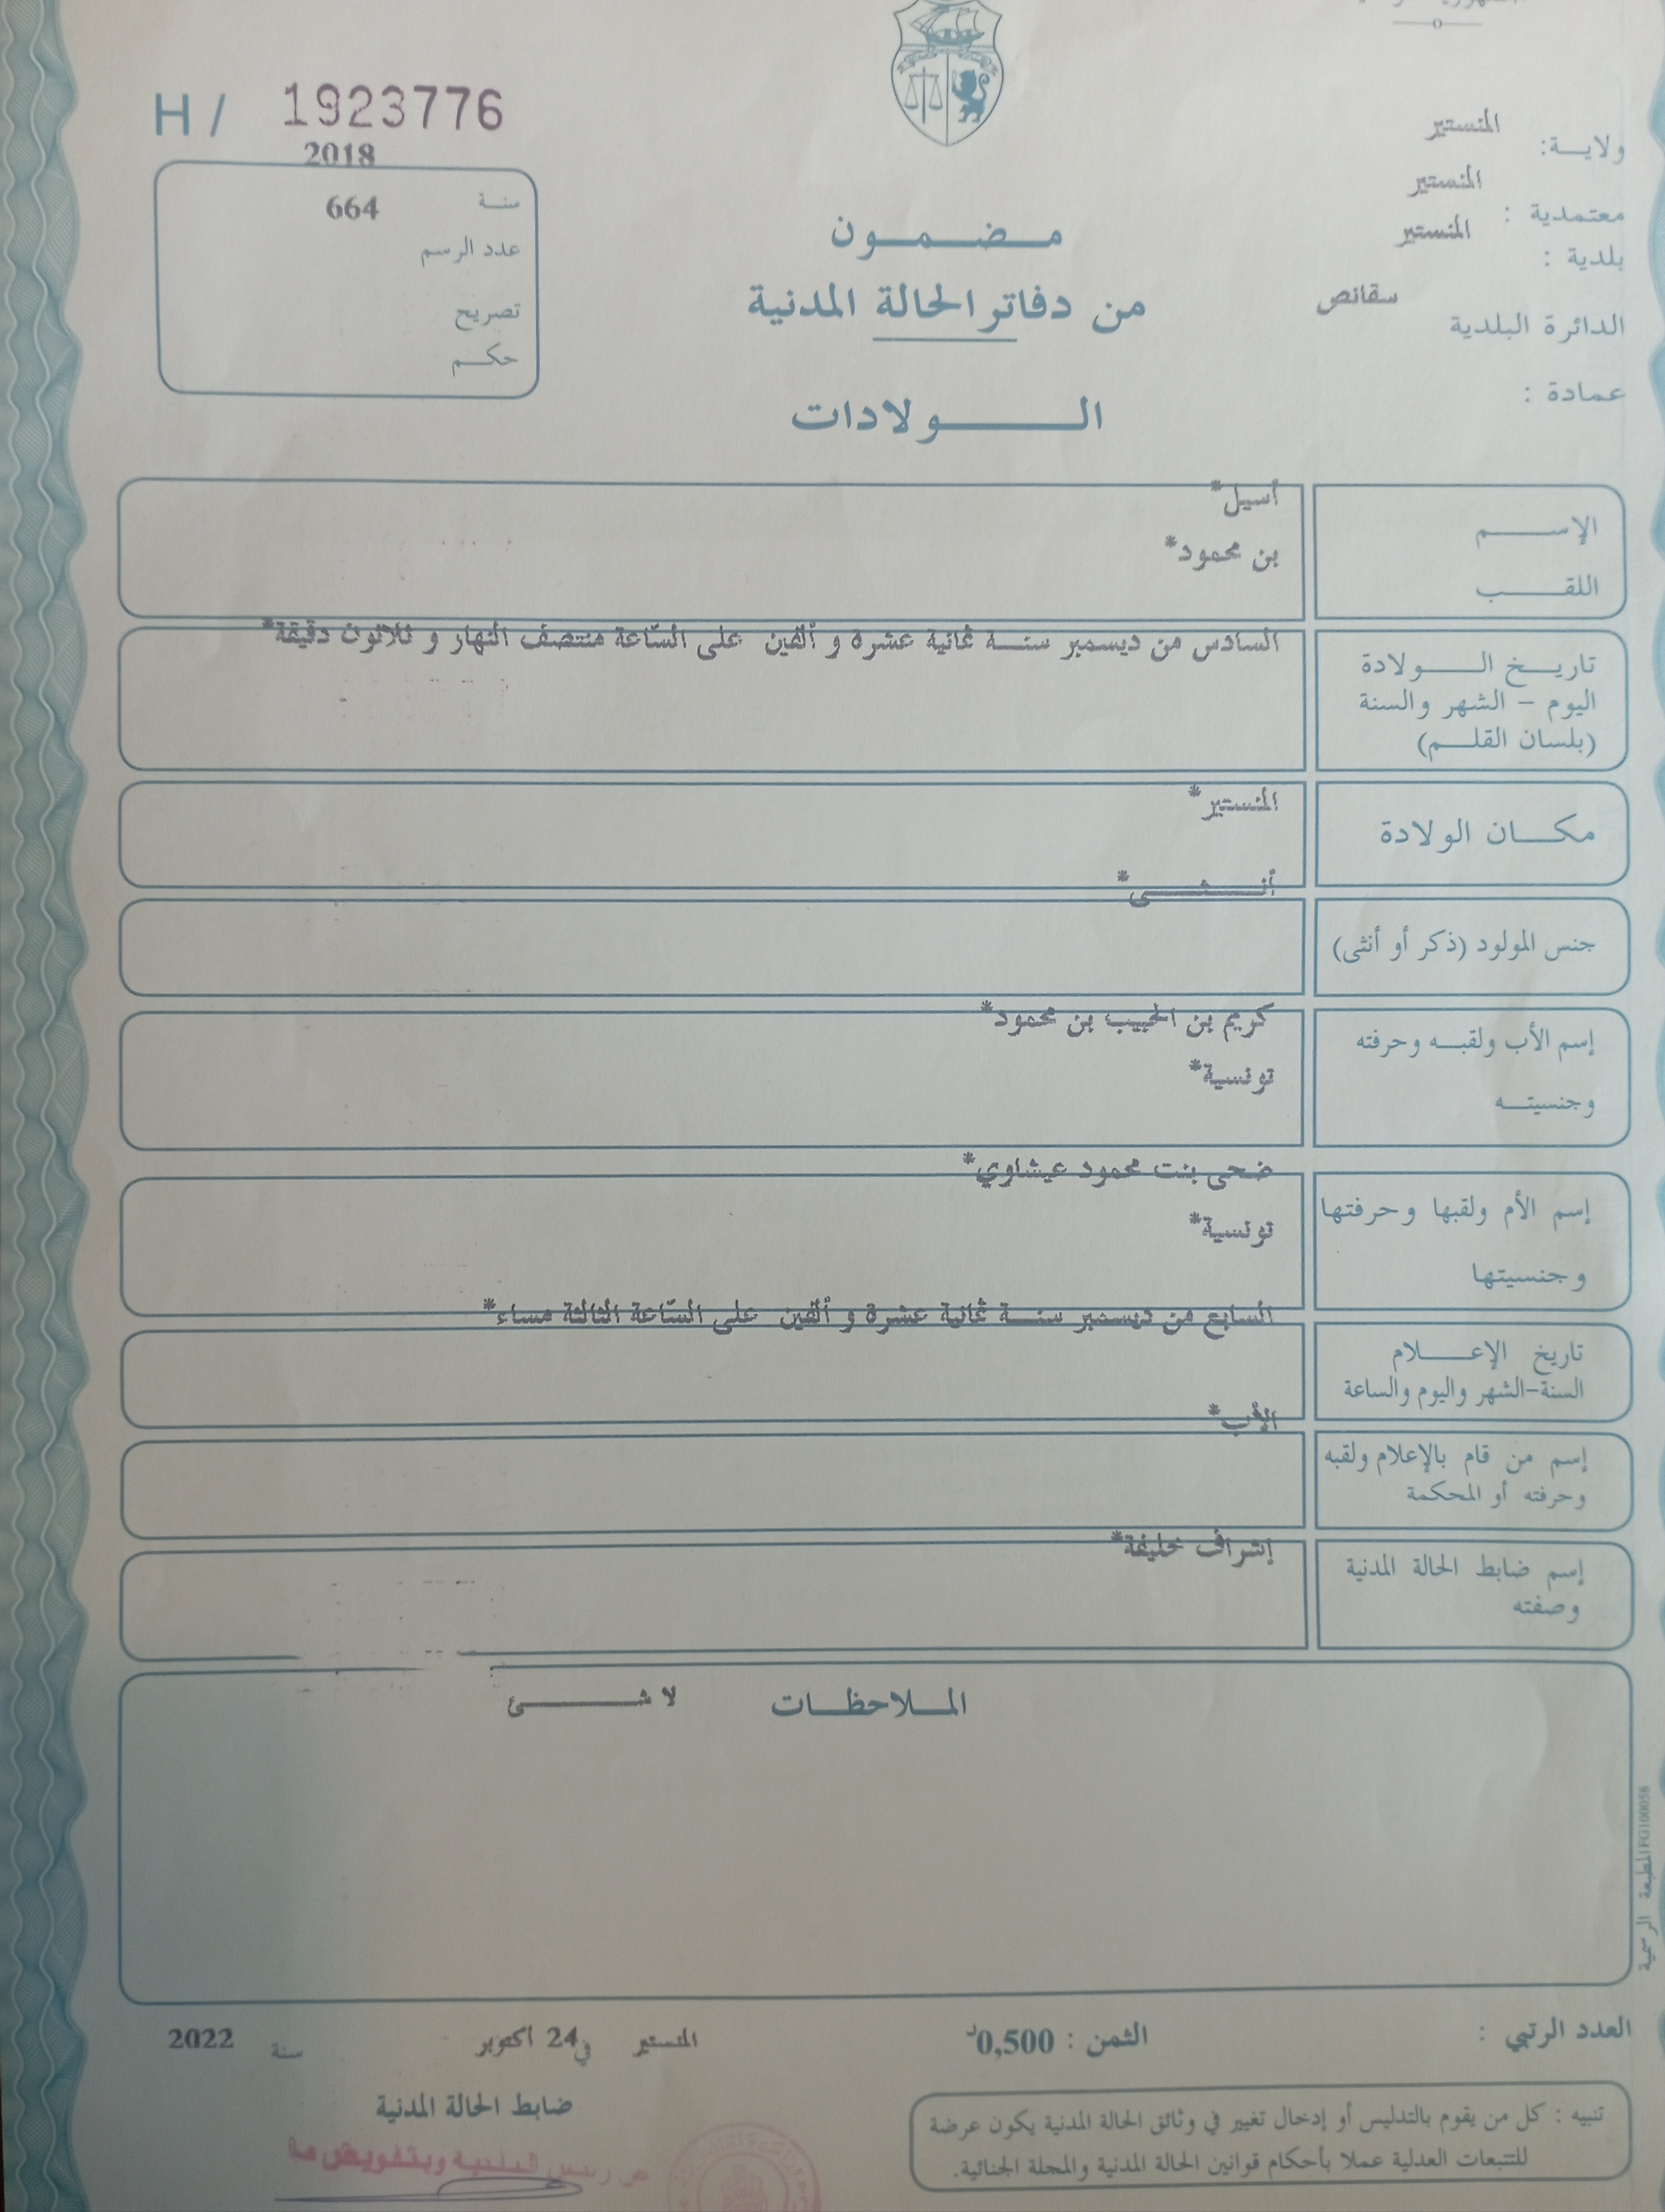 H / 1923776
ولايــة: المنستير
معتمدية : المنستير
بلدية : المنستير
الدائرة البلدية سقانص
عمادة :
2018
سنــة 664
عدد الرسم
تصريح
حكــم
مــضــمــون
من دفاتر الحالة المدنية
الــــولادات
الإســــم أسيل*
اللقــــب بن محمود*
تاريــخ الــــولادة السادس من ديسمبر سنــة ثمانية عشرة و ألفين على السّاعة منتصف النهار و ثلاثون دقيقة*
اليوم – الشهر والسنة
(بلسان القلــم)
مكــان الولادة المنستير*
جنس المولود (ذكر أو أنثى) أنــــثــــى*
إسم الأب ولقبــه وحرفته كريم بن الحبيب بن محمود*
وجنسيتــه تونسية*
إسم الأم ولقبها وحرفتها ضحى بنت محمود عيشاوي*
وجنسيتها تونسية*
تاريخ الإعــــلام السابع من ديسمبر سنــة ثمانية عشرة و ألفين على السّاعة الثالثة مساء*
السنة-الشهر واليوم والساعة
إسم من قام بالإعلام ولقبه الأب*
وحرفته أو المحكمة
إسم ضابط الحالة المدنية إشراف خليفة*
وصفته
المــلاحظــات لا شــــــئ
المطبعة الرسمية FG100058
العدد الرتبي :
الثمن : 0,500د
المنستير في 24 اكتوبر سنة 2022
ضابط الحالة المدنية
عن رئيس البلدية وبتفويض منه
تنبيه : كل من يقوم بالتدليس أو إدخال تغيير في وثائق الحالة المدنية يكون عرضة
للتتبعات العدلية عملا بأحكام قوانين الحالة المدنية والمجلة الجنائية.